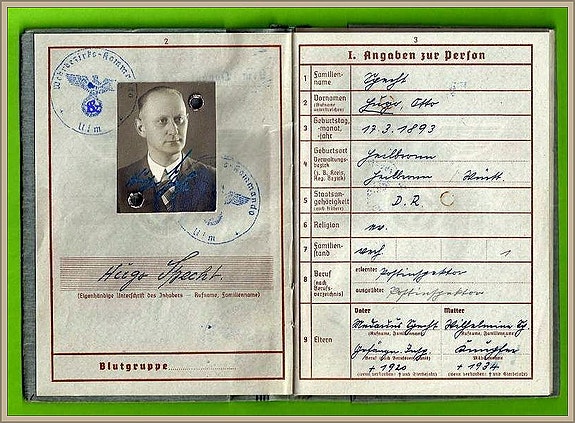 2
Wehrbezirks-Kommando
Ulm
Ulm
Hugo Specht.
(Eigenhändige Unterschrift des Inhabers — Rufname, Familienname)
Blutgruppe
3
I. Angaben zur Person
1 Familienname Specht
2 Vornamen (Rufname unterstreichen) Hugo, Otto
3 Geburtstag, -monat, -jahr 17.3.1893
4 Geburtsort Heilbronn
Verwaltungsbezirk (z. B. Kreis, Reg. Bezirk) Heilbronn Württ.
5 Staatsangehörigkeit (auch frühere) D.R.
6 Religion ev.
7 Familienstand verh. 1
8 Beruf (nach Berufsverzeichnis) erlernter Postinspektor
ausgeübter Postinspektor
Vater Mutter
9 Eltern Medardus Specht Wilhelmine
(Rufname, Familienname) (Rufname, Familienname)
(Beruf nach Berufsverzeichnis) (Mädchenname)
† 1920 † 1934
(wenn verstorben: † und Sterbejahr) (wenn verstorben: † und Sterbejahr)